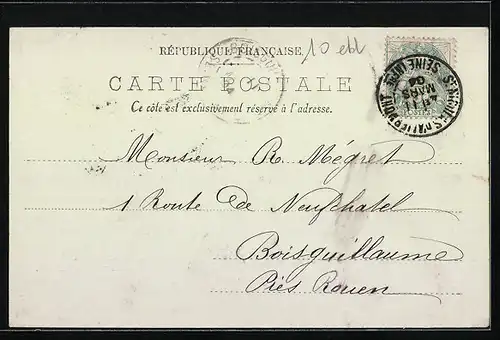 10 ebl
RÉPUBLIQUE FRANÇAISE
CARTE POSTALE
Ce côté est exclusivement réservé à l'adresse.
Monsieur R. Mégret
1 Route de Neufchatel
Boisguillaume
Près Rouen
ST NICOLAS D'ALIERMONT
11
MARS
04
SEINE INFRE
POSTES